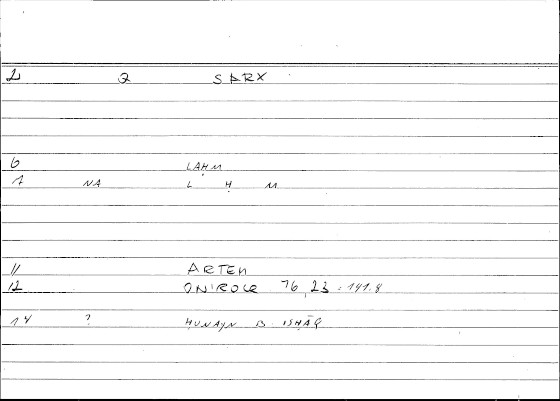 2 Q SARX
6 LAḤM
7 NA L Ḥ M
11 ARTEM
12 ONIROCR 76,23 : 141.8
14 ? ḤUNAYN B. ISḤĀQ